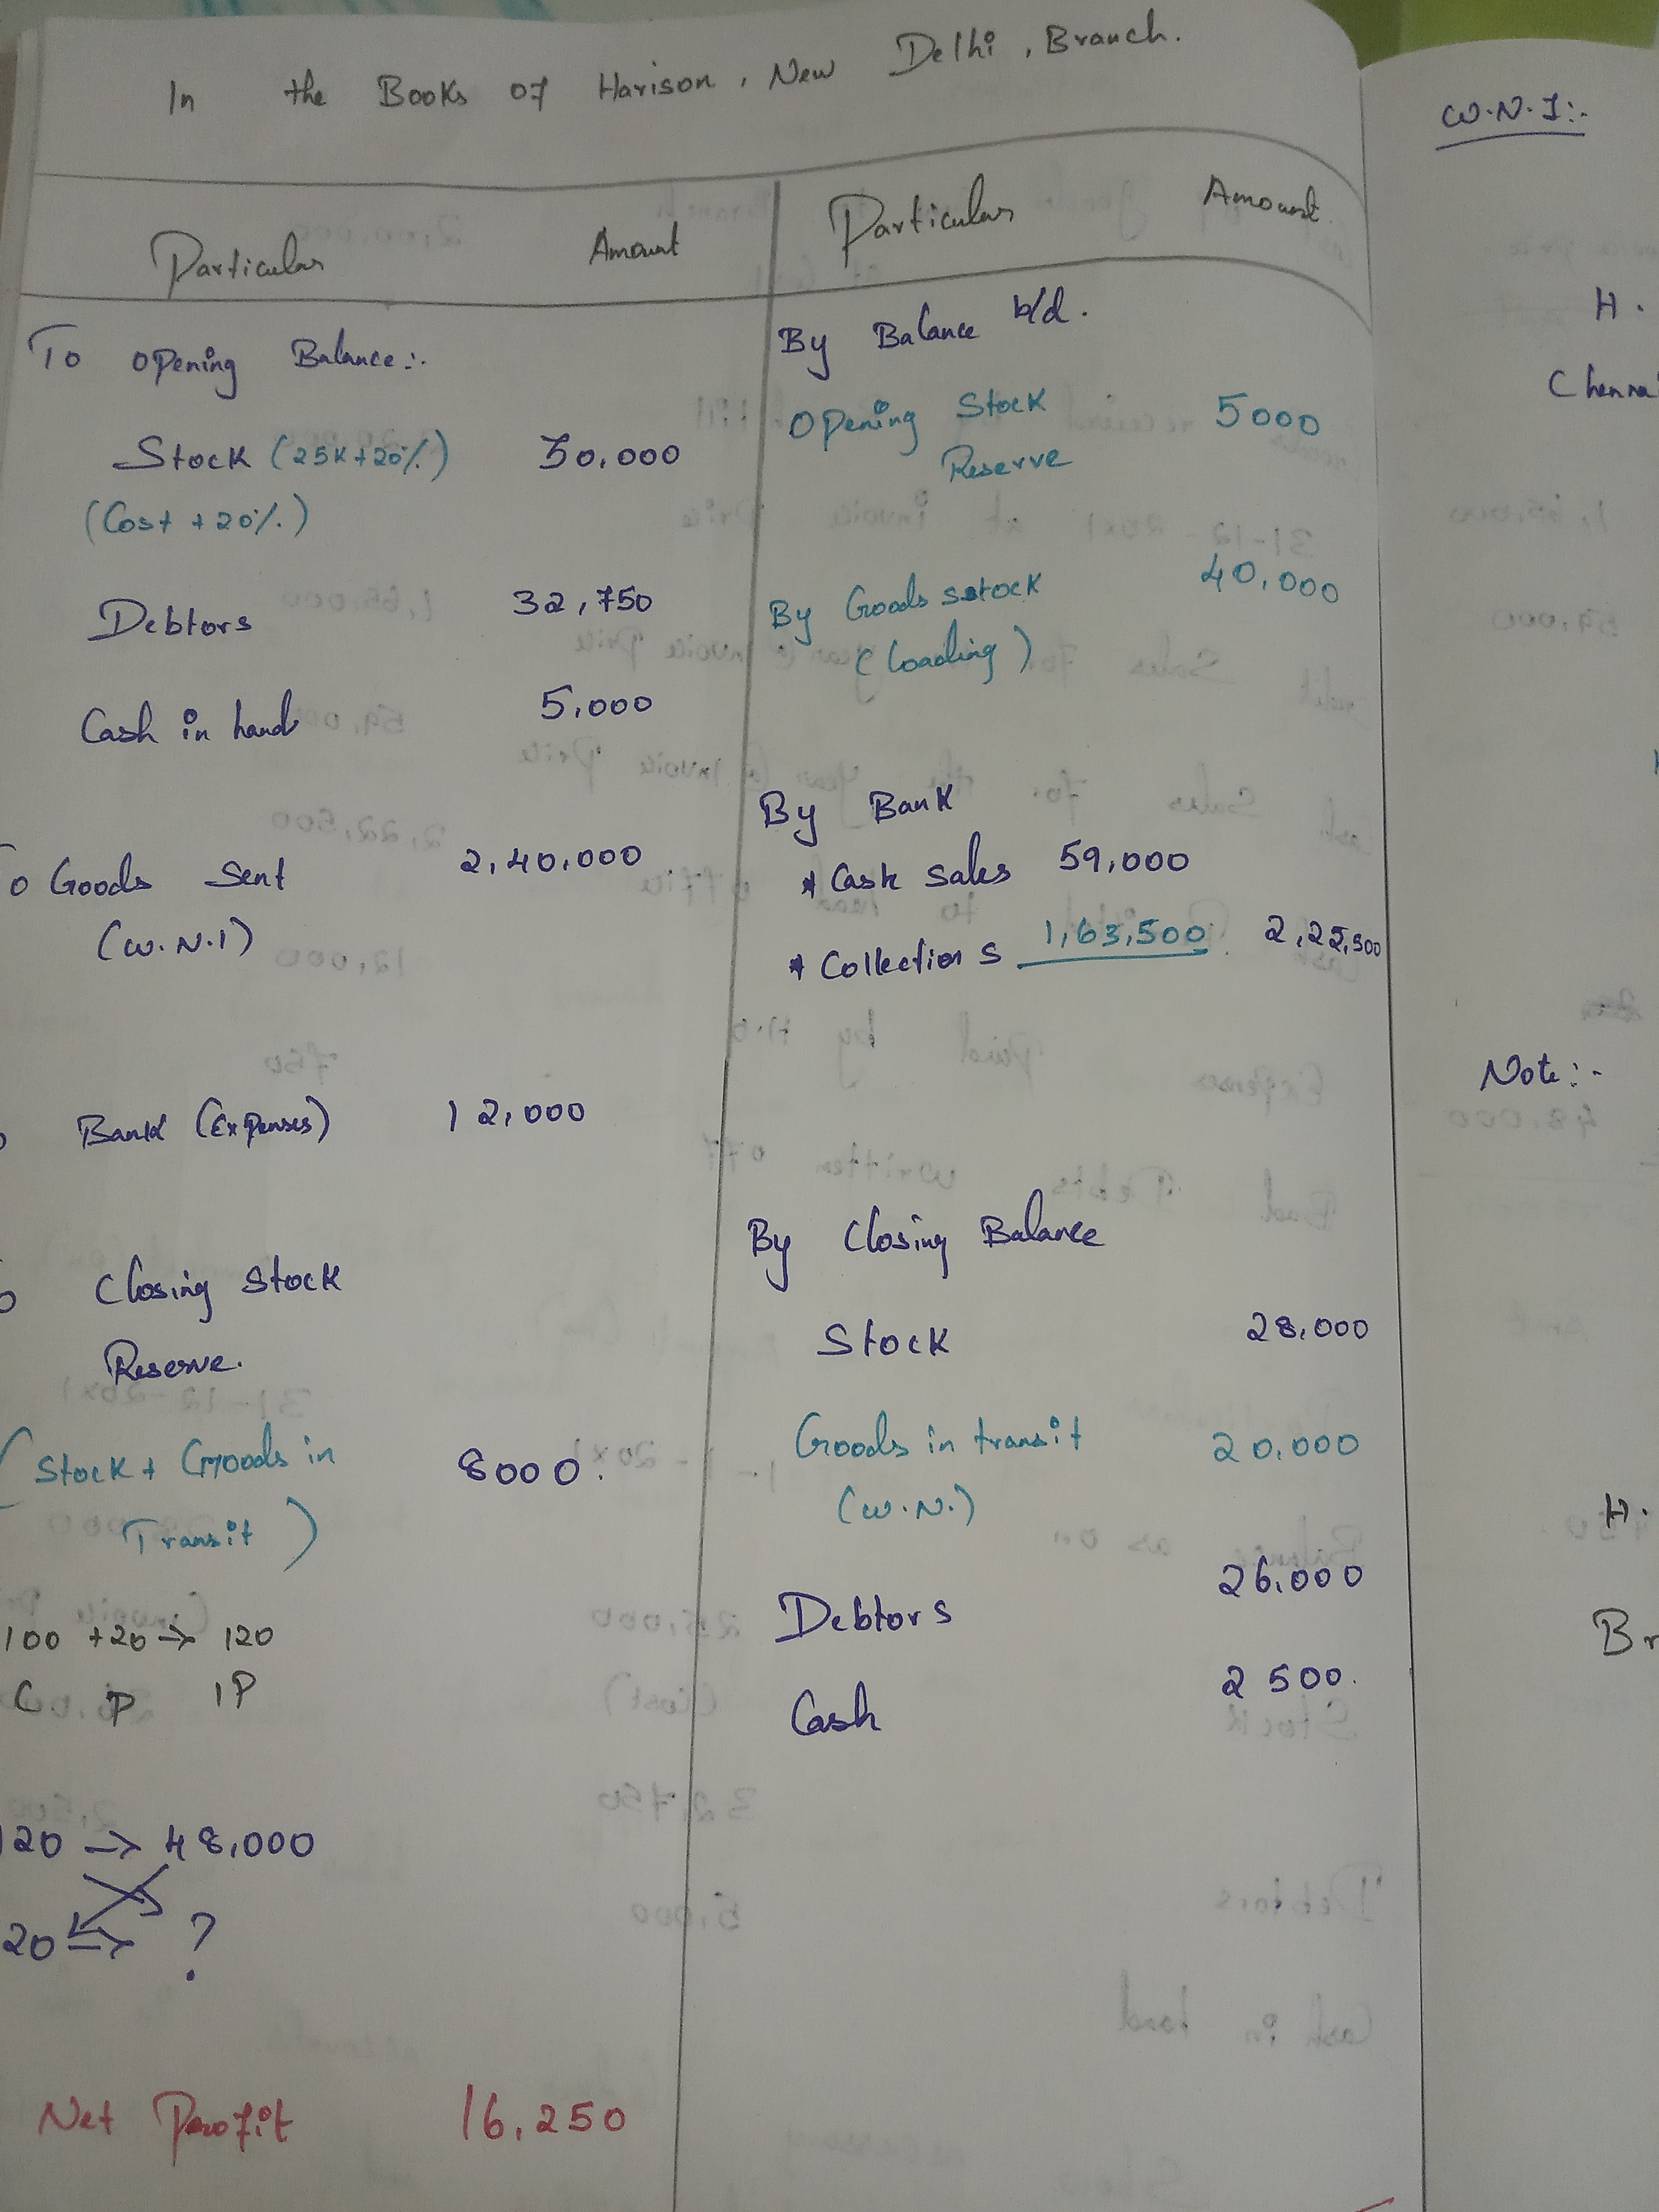 In the Books of Harison, New Delhi, Branch.
Particulars Amount Particulars Amount
To Opening Balance:-
Stock (25K+20%) 30,000
(Cost +20%.)
Debtors 32,750
Cash in hand 5,000
o Goods Sent 2,40,000
(W.N.1)
Bank (Expenses) 12,000
o Closing Stock
Reserve.
(Stock + Goods in 8000.
Transit)
100 +20 → 120
C P IP
120 → 48,000
20 → ?
Net Profit 16,250
By Balance b/d.
Opening Stock 5000
Reserve
By Goods sstock 40,000
(Loading)
By Bank
* Cash Sales 59,000
* Collections 1,63,500 2,22,500
By Closing Balance
Stock 28,000
Goods in transit 20,000
(W.N.)
Debtors 26,000
Cash 2500.
W.N.1:-
H.
Chenna
Note:-
H.
Br